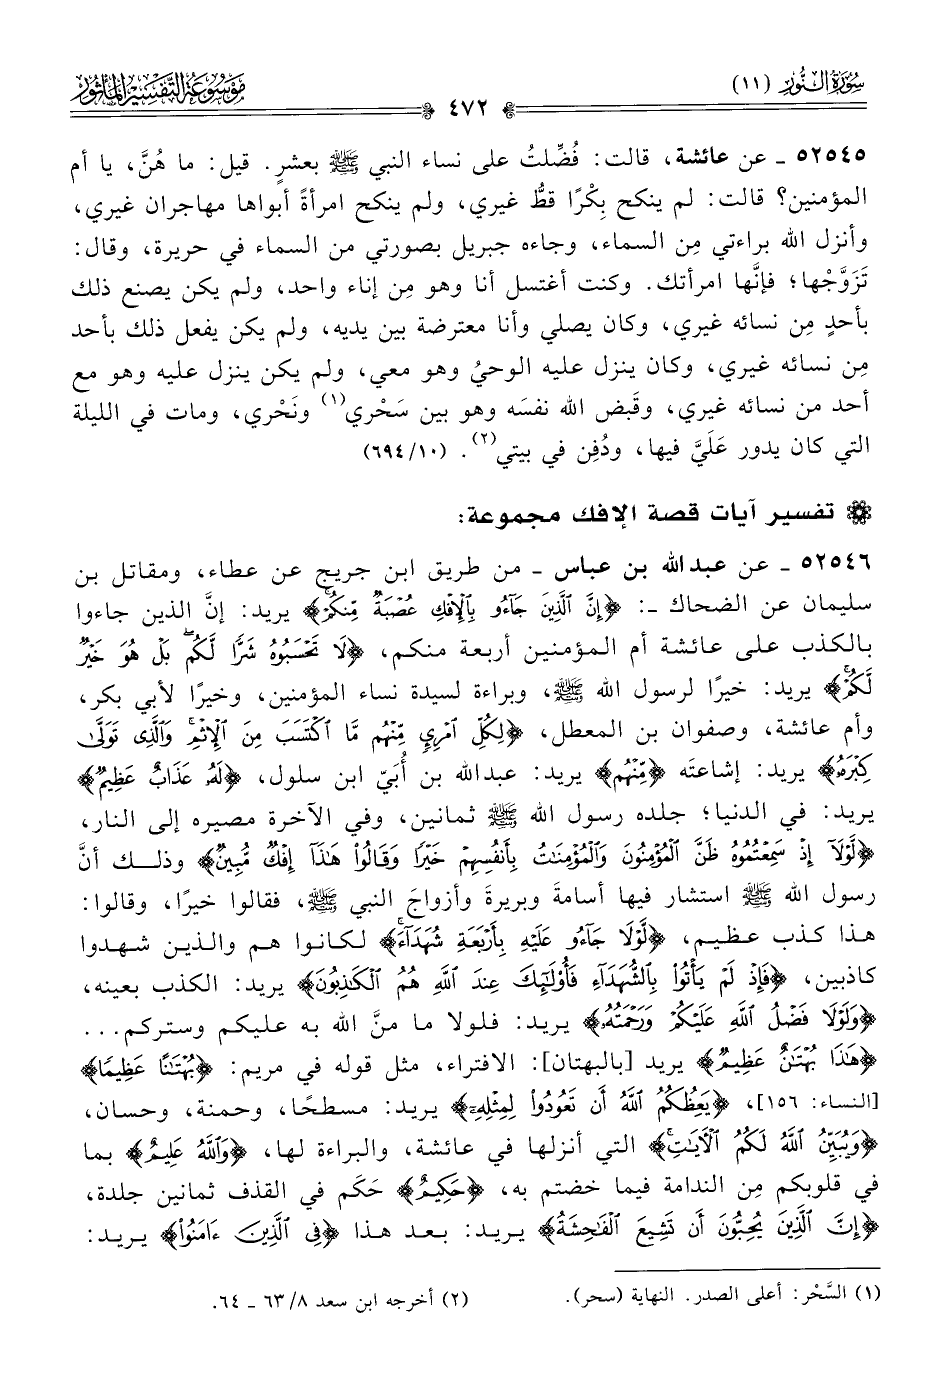 سُورَةُ النُّور (١١)
٤٧٢
مَوْسُوعَة التَّفْسِير المَأْثُور
٥٢٥٤٥ ـ عن عائشة، قالت: فُضِّلتُ على نساء النبي ﷺ بعشرٍ. قيل: ما هُنَّ، يا أم
المؤمنين؟ قالت: لم ينكح بِكْرًا قطُّ غيري، ولم ينكح امرأةً أبواها مهاجران غيري،
وأنزل الله براءتي مِن السماء، وجاءه جبريل بصورتي من السماء في حريرة، وقال:
تَزَوَّجْها؛ فإنَّها امرأتك. وكنت أغتسل أنا وهو مِن إناء واحد، ولم يكن يصنع ذلك
بأحدٍ مِن نسائه غيري، وكان يصلي وأنا معترضة بين يديه، ولم يكن يفعل ذلك بأحد
مِن نسائه غيري، وكان ينزل عليه الوحيُ وهو معي، ولم يكن ينزل عليه وهو مع
أحد من نسائه غيري، وقَبض الله نفسَه وهو بين سَحْري(١) ونَحْري، ومات في الليلة
التي كان يدور عَلَيَّ فيها، ودُفِن في بيتي(٢). (٦٩٤/١٠)
تفسير آيات قصة الإفك مجموعة:
٥٢٥٤٦ ـ عن عبدالله بن عباس ـ من طريق ابن جريج عن عطاء، ومقاتل بن
سليمان عن الضحاك ـ: ﴿إِنَّ ٱلَّذِينَ جَآءُو بِٱلْإِفْكِ عُصْبَةٌ مِّنكُمْ﴾ يريد: إنَّ الذين جاءوا
بالكذب على عائشة أم المؤمنين أربعة منكم، ﴿لَا تَحْسَبُوهُ شَرًّا لَّكُم بَلْ هُوَ خَيْرٌ
لَّكُمْ﴾ يريد: خيرًا لرسول الله ﷺ، وبراءة لسيدة نساء المؤمنين، وخيرًا لأبي بكر،
وأم عائشة، وصفوان بن المعطل، ﴿لِكُلِّ ٱمْرِئٍ مِّنْهُم مَّا ٱكْتَسَبَ مِنَ ٱلْإِثْمِ وَٱلَّذِى تَوَلَّىٰ
كِبْرَهُۥ﴾ يريد: إشاعتَه ﴿مِنْهُمْ﴾ يريد: عبدالله بن أُبَيّ ابن سلول، ﴿لَهُۥ عَذَابٌ عَظِيمٌ﴾
يريد: في الدنيا؛ جلده رسول الله ﷺ ثمانين، وفي الآخرة مصيره إلى النار،
﴿لَّوْلَآ إِذْ سَمِعْتُمُوهُ ظَنَّ ٱلْمُؤْمِنُونَ وَٱلْمُؤْمِنَٰتُ بِأَنفُسِهِمْ خَيْرًا وَقَالُوا۟ هَٰذَآ إِفْكٌ مُّبِينٌ﴾ وذلك أنَّ
رسول الله ﷺ استشار فيها أسامةَ وبريرةَ وأزواجَ النبي ﷺ، فقالوا خيرًا، وقالوا:
هذا كذب عظيم، ﴿لَّوْلَا جَآءُو عَلَيْهِ بِأَرْبَعَةِ شُهَدَآءَ﴾ لكانوا هم والذين شهدوا
كاذبين، ﴿فَإِذْ لَمْ يَأْتُوا۟ بِٱلشُّهَدَآءِ فَأُو۟لَٰٓئِكَ عِندَ ٱللَّهِ هُمُ ٱلْكَٰذِبُونَ﴾ يريد: الكذب بعينه،
﴿وَلَوْلَا فَضْلُ ٱللَّهِ عَلَيْكُمْ وَرَحْمَتُهُۥ﴾ يريد: فلولا ما منَّ الله به عليكم وستركم...
﴿هَٰذَا بُهْتَٰنٌ عَظِيمٌ﴾ يريد [بالبهتان]: الافتراء، مثل قوله في مريم: ﴿بُهْتَٰنًا عَظِيمًا﴾
[النساء: ١٥٦]، ﴿يَعِظُكُمُ ٱللَّهُ أَن تَعُودُوا۟ لِمِثْلِهِۦٓ﴾ يريد: مسطحًا، وحمنة، وحسان،
﴿وَيُبَيِّنُ ٱللَّهُ لَكُمُ ٱلْءَايَٰتِ﴾ التي أنزلها في عائشة، والبراءة لها، ﴿وَٱللَّهُ عَلِيمٌ﴾ بما
في قلوبكم مِن الندامة فيما خضتم به، ﴿حَكِيمٌ﴾ حَكَم في القذف ثمانين جلدة،
﴿إِنَّ ٱلَّذِينَ يُحِبُّونَ أَن تَشِيعَ ٱلْفَٰحِشَةُ﴾ يريد: بعد هذا ﴿فِى ٱلَّذِينَ ءَامَنُوا۟﴾ يريد:
(١) السَّحْر: أعلى الصدر. النهاية (سحر).
(٢) أخرجه ابن سعد ٨/ ٦٣ ـ ٦٤.